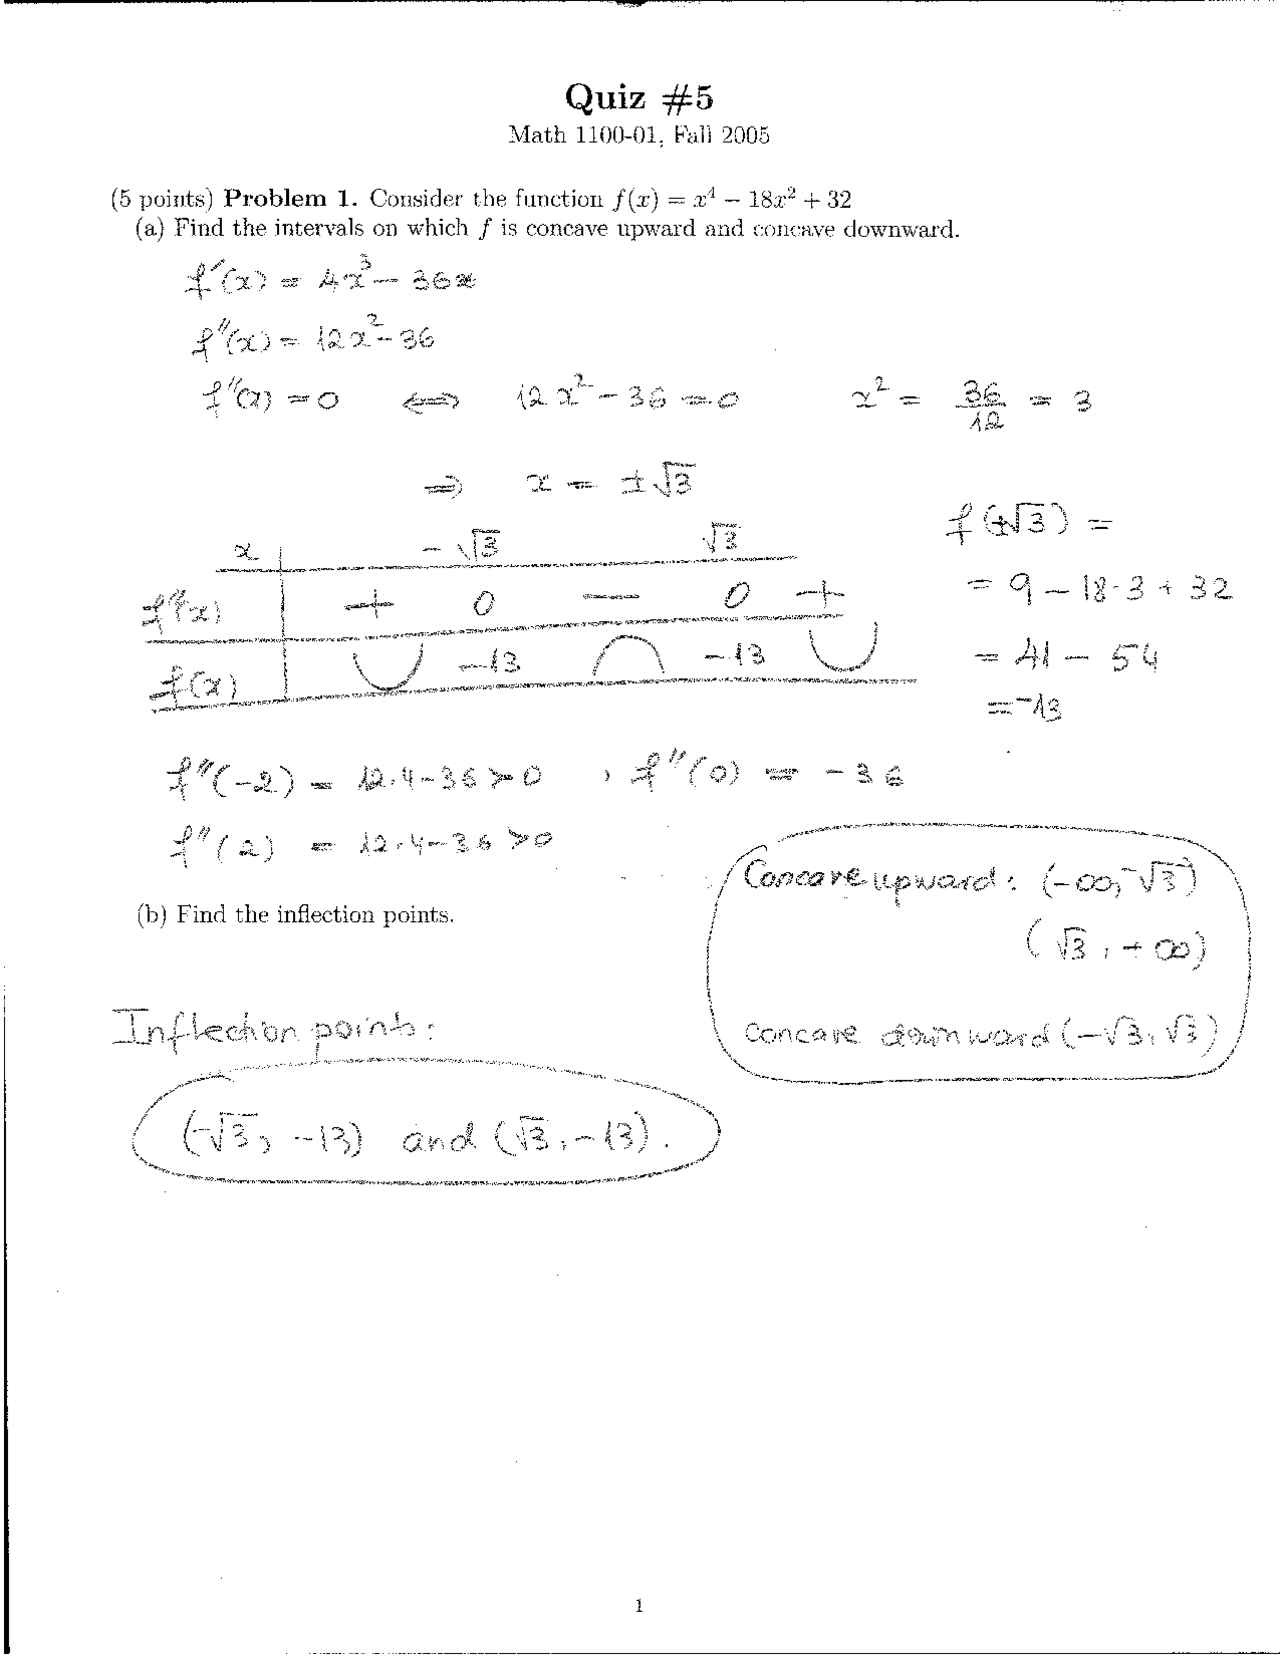 Quiz #5
Math 1100-01, Fall 2005
(5 points) Problem 1. Consider the function f(x) = x⁴ − 18x² + 32
(a) Find the intervals on which f is concave upward and concave downward.
f′(x) = 4x³ − 36x
f″(x) = 12x² − 36
f″(x) = 0 ⟺ 12x² − 36 = 0 x² = 36/12 = 3
⇒ x = ±√3
f(±√3) =
x −√3 √3
= 9 − 18·3 + 32
f″(x) + 0 − 0 +
= 41 − 54
f(x) ∪ −13 ∩ −13 ∪
= −13
f″(−2) = 12·4−36 > 0 , f″(0) = −36
f″(2) = 12·4−36 > 0
Concave upward: (−∞, −√3)
(b) Find the inflection points.
(√3, +∞)
Inflection points:
concave downward (−√3, √3)
(−√3, −13) and (√3, −13).
1